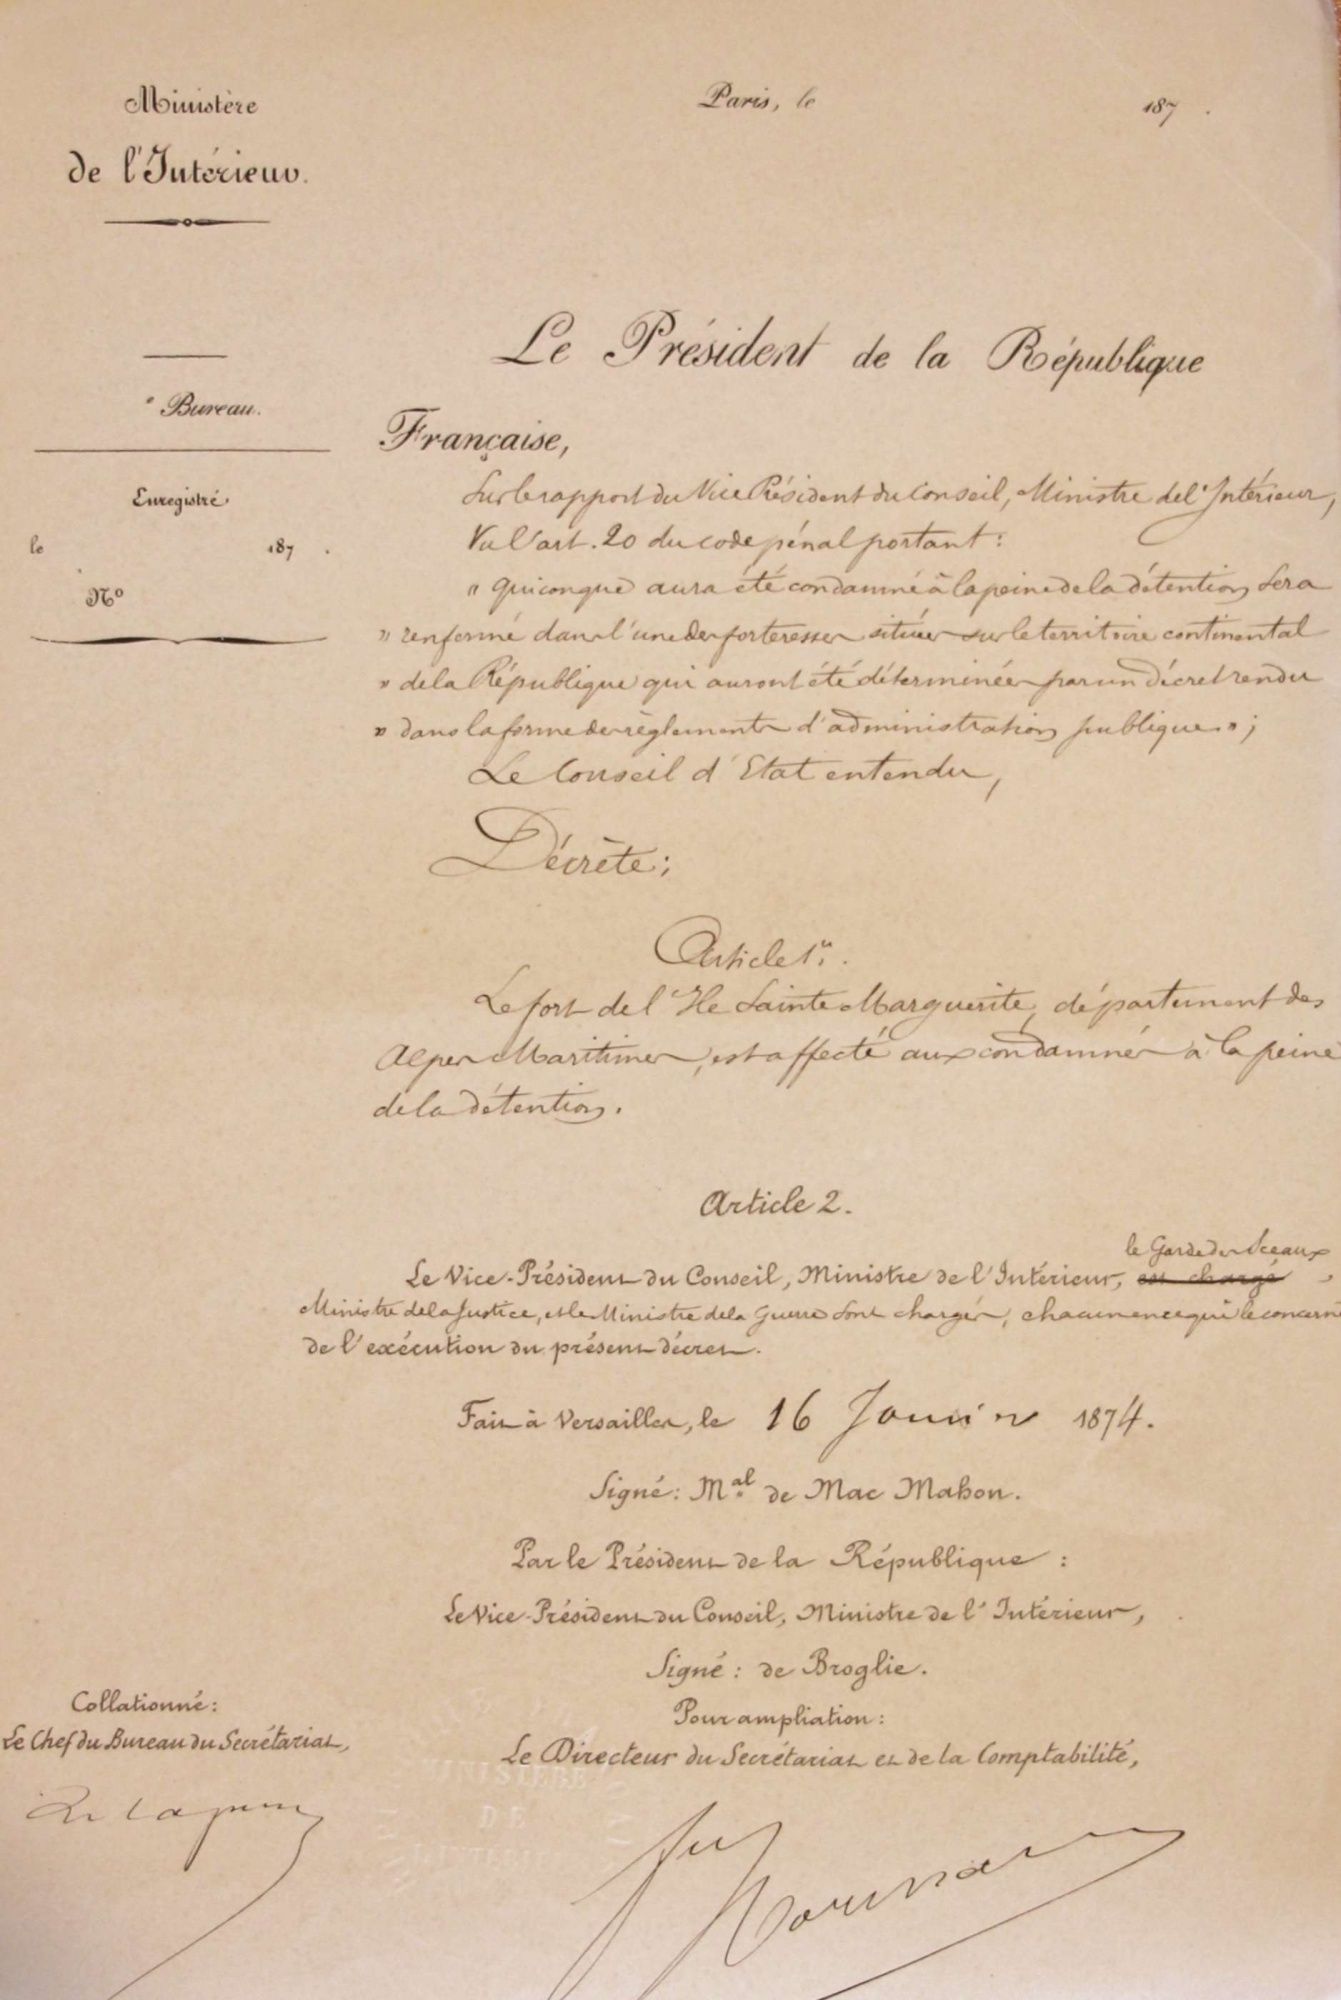 Ministère
de l'Intérieur.
Paris, le 187 .
Bureau.
Enregistré
le 187 .
No
Le Président de la République
Française,
Sur le rapport du Vice Président du Conseil, Ministre de l'Intérieur,
Vu l'art. 20 du code pénal portant :
" Quiconque aura été condamné à la peine de la détention sera
" renfermé dans l'une des forteresses situées sur le territoire continental
" de la République qui auront été déterminées par un décret rendu
" dans la forme des règlements d'administration publique " ;
Le Conseil d'Etat entendu,
Décrète ;
Article 1er.
Le fort de l'Ile Sainte Marguerite, département des
Alpes Maritimes, est affecté aux condamnés à la peine
de la détention.
Article 2.
le Garde des Sceaux
Le Vice-Président du Conseil, Ministre de l'Intérieur, est chargé ,
Ministre de la Justice, et le Ministre de la Guerre sont chargés, chacun en ce qui le concerne
de l'exécution du présent décret.
Fait à Versailles, le 16 Janvier 1874.
Signé : Mal de Mac Mahon.
Par le Président de la République :
Le Vice-Président du Conseil, Ministre de l'Intérieur,
Signé : de Broglie.
Pour ampliation :
Le Directeur du Secrétariat et de la Comptabilité,
Collationné :
Le Chef du Bureau du Secrétariat,
MINISTÈRE
DE
L'INTÉRIEUR